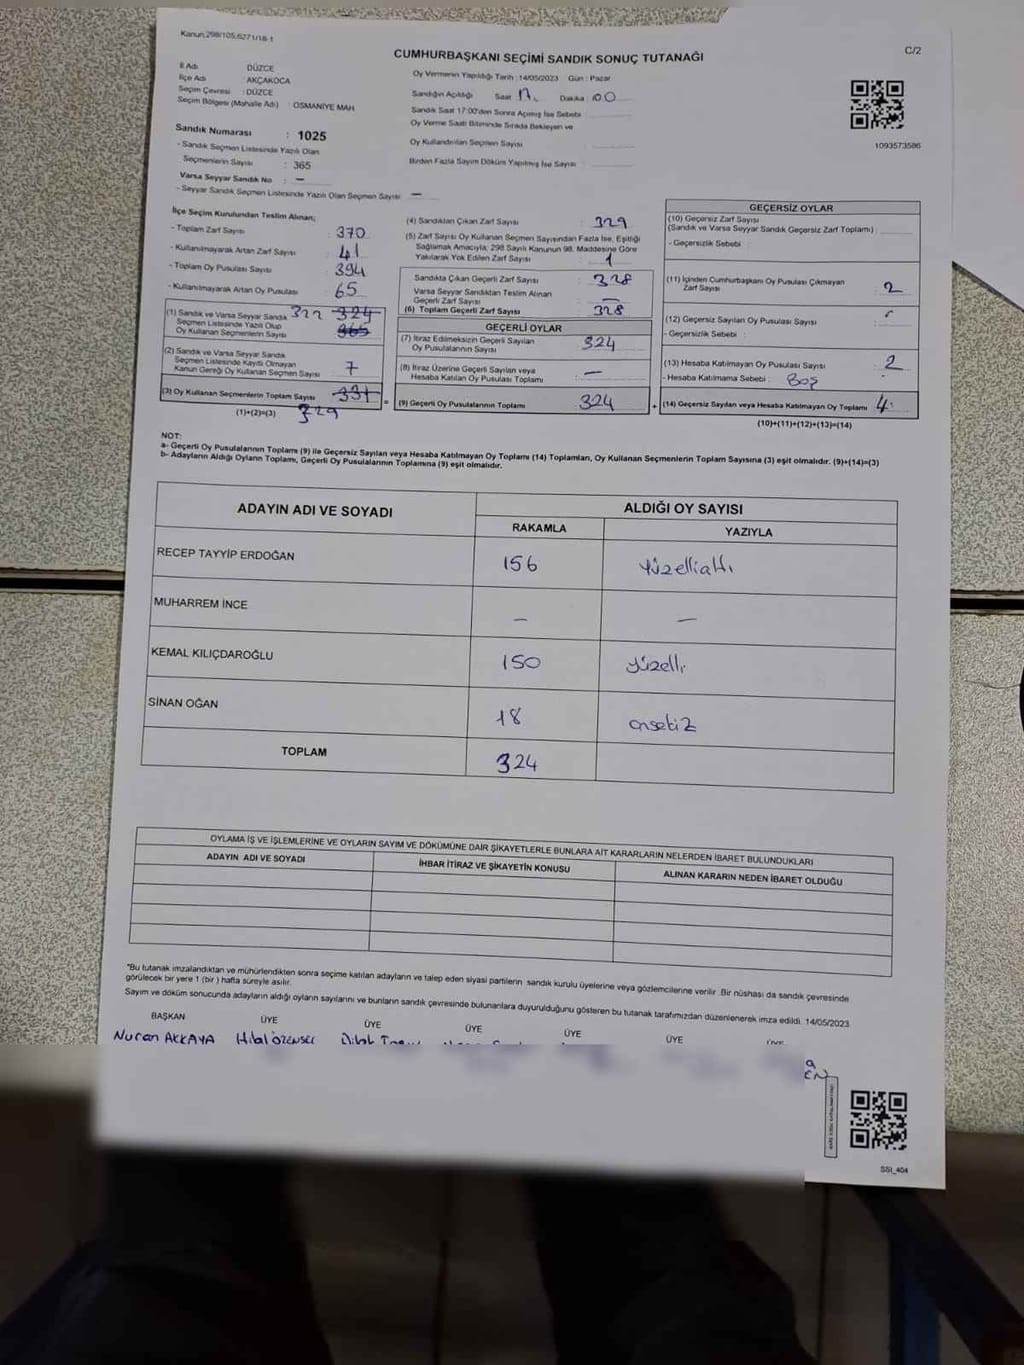 Kanun:298/105;6271/18-1
CUMHURBAŞKANI SEÇİMİ SANDIK SONUÇ TUTANAĞI
C/2
İl Adı DÜZCE
İlçe Adı AKÇAKOCA
Seçim Çevresi : DÜZCE
Seçim Bölgesi (Mahalle Adı) : OSMANİYE MAH
Sandık Numarası : 1025
- Sandık Seçmen Listesinde Yazılı Olan
Seçmenlerin Sayısı : 365
Varsa Seyyar Sandık No : -
- Seyyar Sandık Seçmen Listesinde Yazılı Olan Seçmen Sayısı : -
Oy Vermenin Yapıldığı Tarih : 14/05/2023 Gün : Pazar
Sandığın Açıldığı Saat 17. Dakika 00
Sandık Saat 17:00'den Sonra Açılmış İse Sebebi
Oy Verme Saati Bitiminde Sırada Bekleyen ve
Oy Kullandırılan Seçmen Sayısı
Birden Fazla Sayım Döküm Yapılmış İse Sayısı
1093573586
İlçe Seçim Kurulundan Teslim Alınan;
- Toplam Zarf Sayısı : 370
- Kullanılmayarak Artan Zarf Sayısı : 41
- Toplam Oy Pusulası Sayısı : 394
- Kullanılmayarak Artan Oy Pusulası : 65
(1) Sandık ve Varsa Seyyar Sandık 322 324
Seçmen Listesinde Yazılı Olup 365
Oy Kullanan Seçmenlerin Sayısı
(2) Sandık ve Varsa Seyyar Sandık
Seçmen Listesinde Kayıtlı Olmayan
Kanun Gereği Oy Kullanan Seçmen Sayısı 7
(3) Oy Kullanan Seçmenlerin Toplam Sayısı 331
(1)+(2)=(3) 329
(4) Sandıktan Çıkan Zarf Sayısı : 329
(5) Zarf Sayısı Oy Kullanan Seçmen Sayısından Fazla İse, Eşitliği
Sağlamak Amacıyla; 298 Sayılı Kanunun 98. Maddesine Göre
Yakılarak Yok Edilen Zarf Sayısı : 1
Sandıkta Çıkan Geçerli Zarf Sayısı : 328
Varsa Seyyar Sandıktan Teslim Alınan
Geçerli Zarf Sayısı : -
(6) Toplam Geçerli Zarf Sayısı : 328
GEÇERLİ OYLAR
(7) İtiraz Edilmeksizin Geçerli Sayılan
Oy Pusulalarının Sayısı 324
(8) İtiraz Üzerine Geçerli Sayılan veya
Hesaba Katılan Oy Pusulası Toplamı : -
(9) Geçerli Oy Pusulalarının Toplamı : 324
GEÇERSİZ OYLAR
(10) Geçersiz Zarf Sayısı
(Sandık ve Varsa Seyyar Sandık Geçersiz Zarf Toplamı) :
- Geçersizlik Sebebi :
(11) İçinden Cumhurbaşkanı Oy Pusulası Çıkmayan
Zarf Sayısı : 2
(12) Geçersiz Sayılan Oy Pusulası Sayısı :
- Geçersizlik Sebebi :
(13) Hesaba Katılmayan Oy Pusulası Sayısı : 2
- Hesaba Katılmama Sebebi : Boş
(14) Geçersiz Sayılan veya Hesaba Katılmayan Oy Toplamı : 4
(10)+(11)+(12)+(13)=(14)
NOT:
a- Geçerli Oy Pusulaları Toplamı (9) ile Geçersiz Sayılan veya Hesaba Katılmayan Oy Toplamı (14) Toplamları, Oy Kullanan Seçmenlerin Toplam Sayısına (3) eşit olmalıdır. (9)+(14)=(3)
b- Adayların Aldığı Oyların Toplamı, Geçerli Oy Pusulalarının Toplamına (9) eşit olmalıdır.
ADAYIN ADI VE SOYADI
ALDIĞI OY SAYISI
RAKAMLA YAZIYLA
RECEP TAYYİP ERDOĞAN 156 Yüzellialtı
MUHARREM İNCE - -
KEMAL KILIÇDAROĞLU 150 yüzelli
SİNAN OĞAN 18 onsekiz
TOPLAM 324
OYLAMA İŞ VE İŞLEMLERİNE VE OYLARIN SAYIM VE DÖKÜMÜNE DAİR ŞİKAYETLERLE BUNLARA AİT KARARLARIN NELERDEN İBARET BULUNDUKLARI
ADAYIN ADI VE SOYADI İHBAR İTİRAZ VE ŞİKAYETİN KONUSU ALINAN KARARIN NEDEN İBARET OLDUĞU
*Bu tutanak imzalandıktan ve mühürlendikten sonra seçime katılan adayların ve talep eden siyasi partilerin sandık kurulu üyelerine veya gözlemcilerine verilir. Bir nüshası da sandık çevresinde
görülecek bir yere 1 (bir) hafta süreyle asılır.
Sayım ve döküm sonucunda adayların aldığı oyların sayılarını ve bunların sandık çevresinde bulunanlara duyurulduğunu gösteren bu tutanak tarafımızdan düzenlenerek imza edildi. 14/05/2023
BAŞKAN ÜYE ÜYE ÜYE ÜYE ÜYE ÜYE
Nuran AKKAYA Hilal
SSI_404